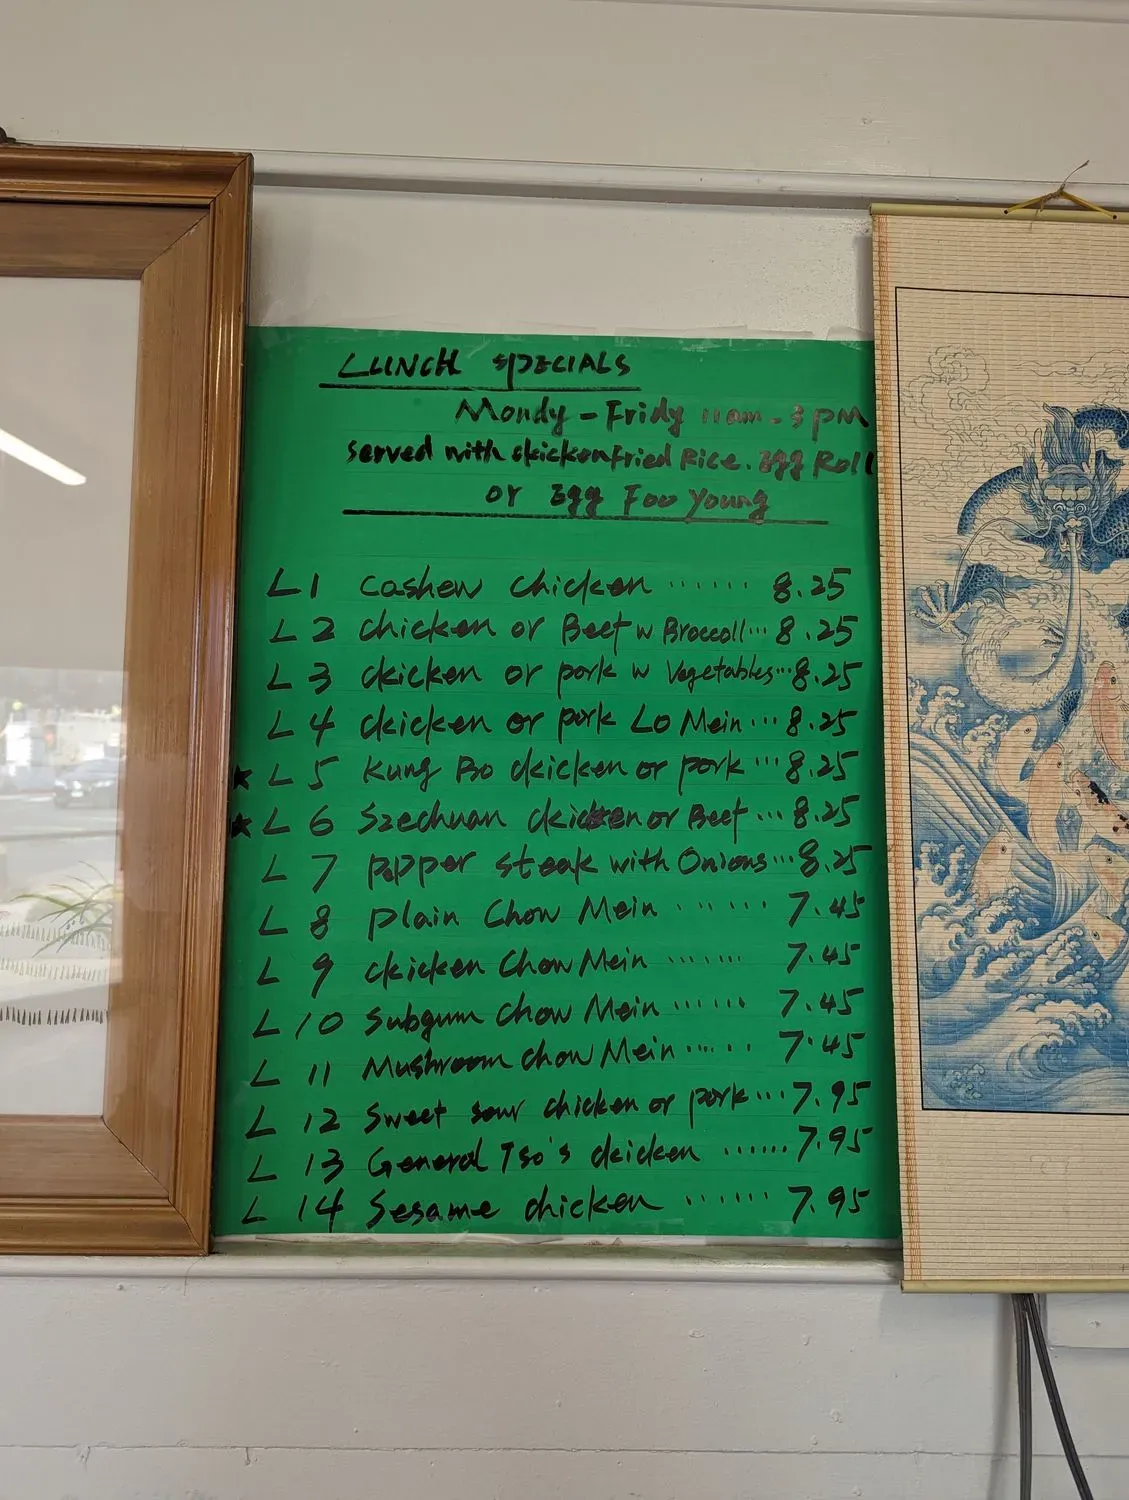 LUNCH SPECIALS
Mondy - Fridy 11am - 3PM
Served with chicken Fried Rice. Egg Roll
or Egg Foo Young
L1 Cashew chicken ...... 8.25
L2 chicken or Beef w Broccoll... 8.25
L3 chicken or pork w Vegetables... 8.25
L4 chicken or pork Lo Mein ... 8.25
★ L5 Kung Bo chicken or pork ... 8.25
★ L6 Szechuan chicken or Beef ... 8.25
L7 pepper steak with Onions ... 8.25
L8 plain Chow Mein ...... 7.45
L9 chicken Chow Mein ...... 7.45
L10 Subgum Chow Mein ...... 7.45
L11 Mushroom Chow Mein ...... 7.45
L12 Sweet sour chicken or pork ... 7.95
L13 General Tso's chicken ...... 7.95
L14 Sesame chicken ...... 7.95